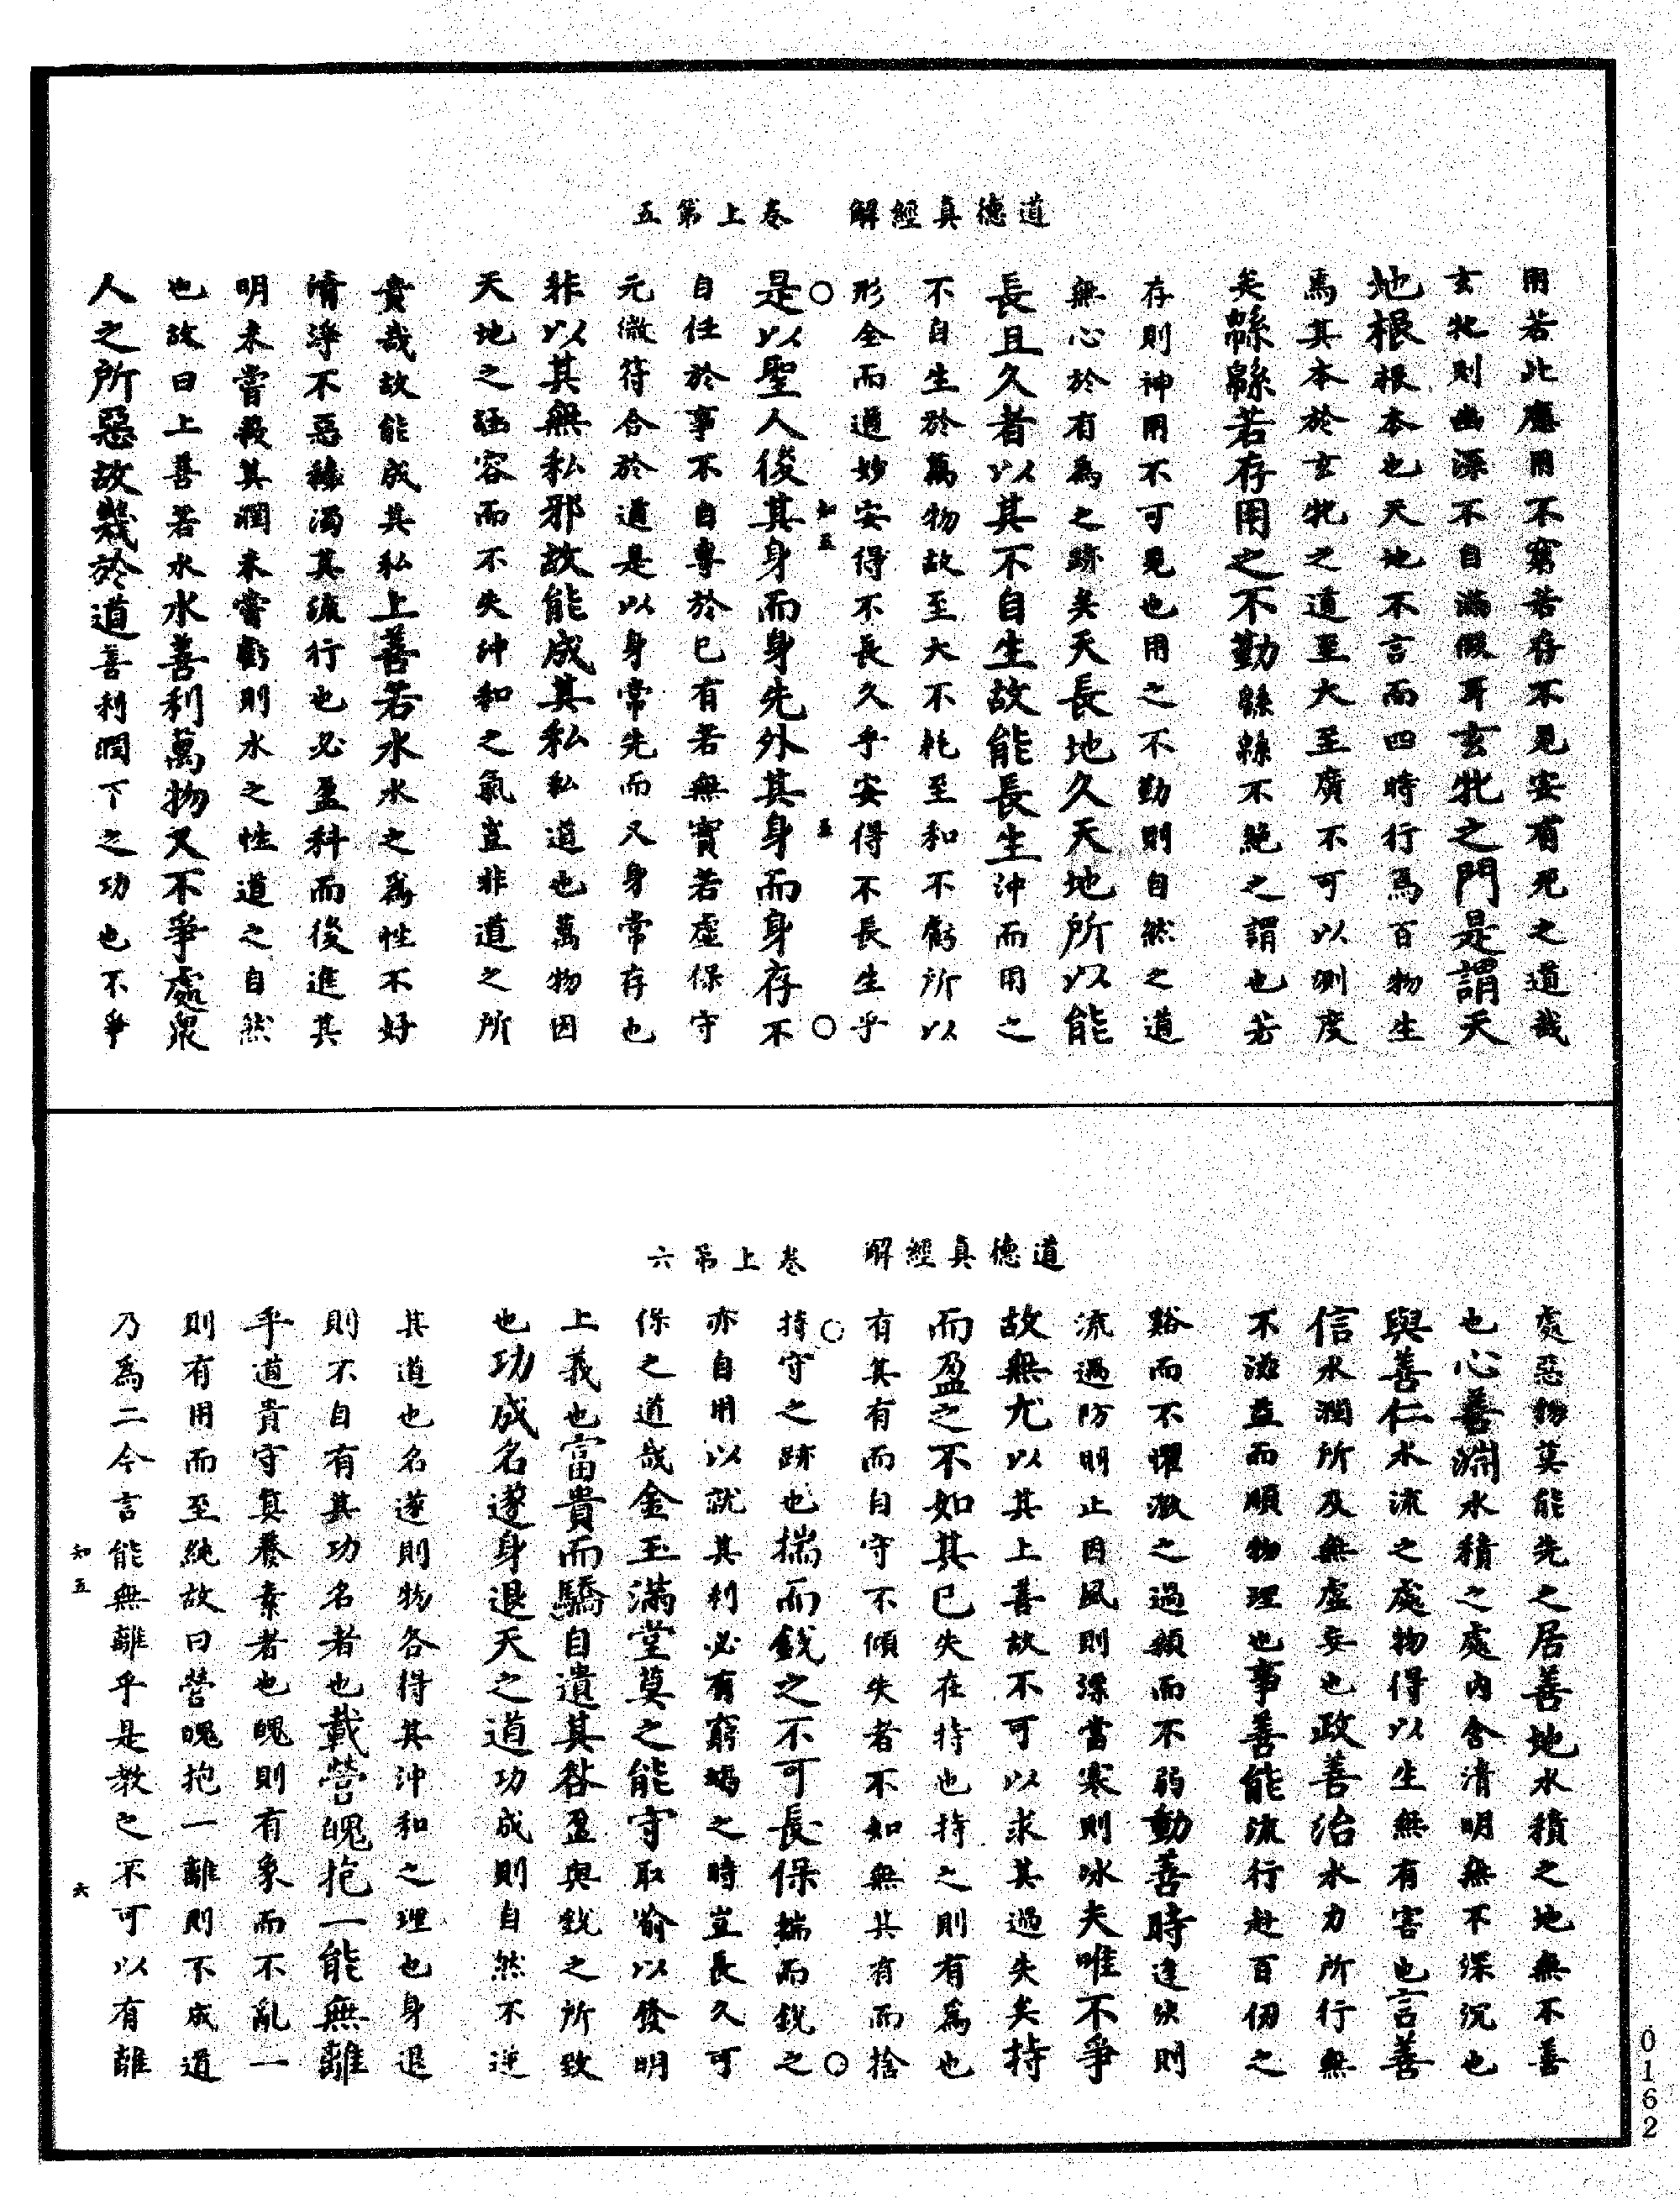 道德真經解　卷上第五
用若此應用不窮若存不見安有死之道哉
玄牝則幽深不自滿假耳玄牝之門是謂天
地根根本也天地不言而四時行焉百物生
焉其本於玄牝之道至大至廣不可以測度
矣緜緜若存用之不勤緜緜不絕之謂也若
存則神用不可見也用之不勤則自然之道
無心於有為之跡矣天長地久天地所以能
長且久者以其不自生故能長生沖而用之
不自生於萬物故至大不耗至和不虧所以
形全而道妙安得不長久乎安得不長生乎
知五
五
是以聖人後其身而身先外其身而身存不
自任於事不自專於已有若無實若虛保守
元微符合於道是以身常先而又身常存也
非以其無私邪故能成其私私道也萬物因
天地之涵容而不失沖和之氣豈非道之所
貴哉故能成其私上善若水水之為性不好
清淨不惡穢濁其流行也必盈科而後進其
明未嘗蔽其潤未嘗虧則水之性道之自然
也故曰上善若水水善利萬物又不爭處衆
人之所惡故幾於道善利潤下之功也不爭
道德真經解　卷上第六
處惡物莫能先之居善地水積之地無不善
也心善淵水積之處內含清明無不深沉也
與善仁水流之處物得以生無有害也言善
信水潤所及無虛妄也政善治水力所行無
不滋益而順物理也事善能流行赴百仞之
谿而不懼激之過顙而不弱動善時逢決則
流過防則止因風則漂當寒則冰夫唯不爭
故無尤以其上善故不可以求其過失矣持
而盈之不如其已失在持也持之則有為也
有其有而自守不傾失者不如無其有而捨
持守之跡也揣而銳之不可長保揣而銳之
亦自用以就其利必有窮竭之時豈長久可
保之道哉金玉滿堂莫之能守取喻以發明
上義也富貴而驕自遺其咎盈與銳之所致
也功成名遂身退天之道功成則自然不逆
其道也名遂則物各得其沖和之理也身退
則不自有其功名者也載營魄抱一能無離
乎道貴守真養素者也魄則有象而不亂一
則有用而至純故曰營魄抱一離則不成道
乃為二今言能無離乎是教之不可以有離
知五
六
0162